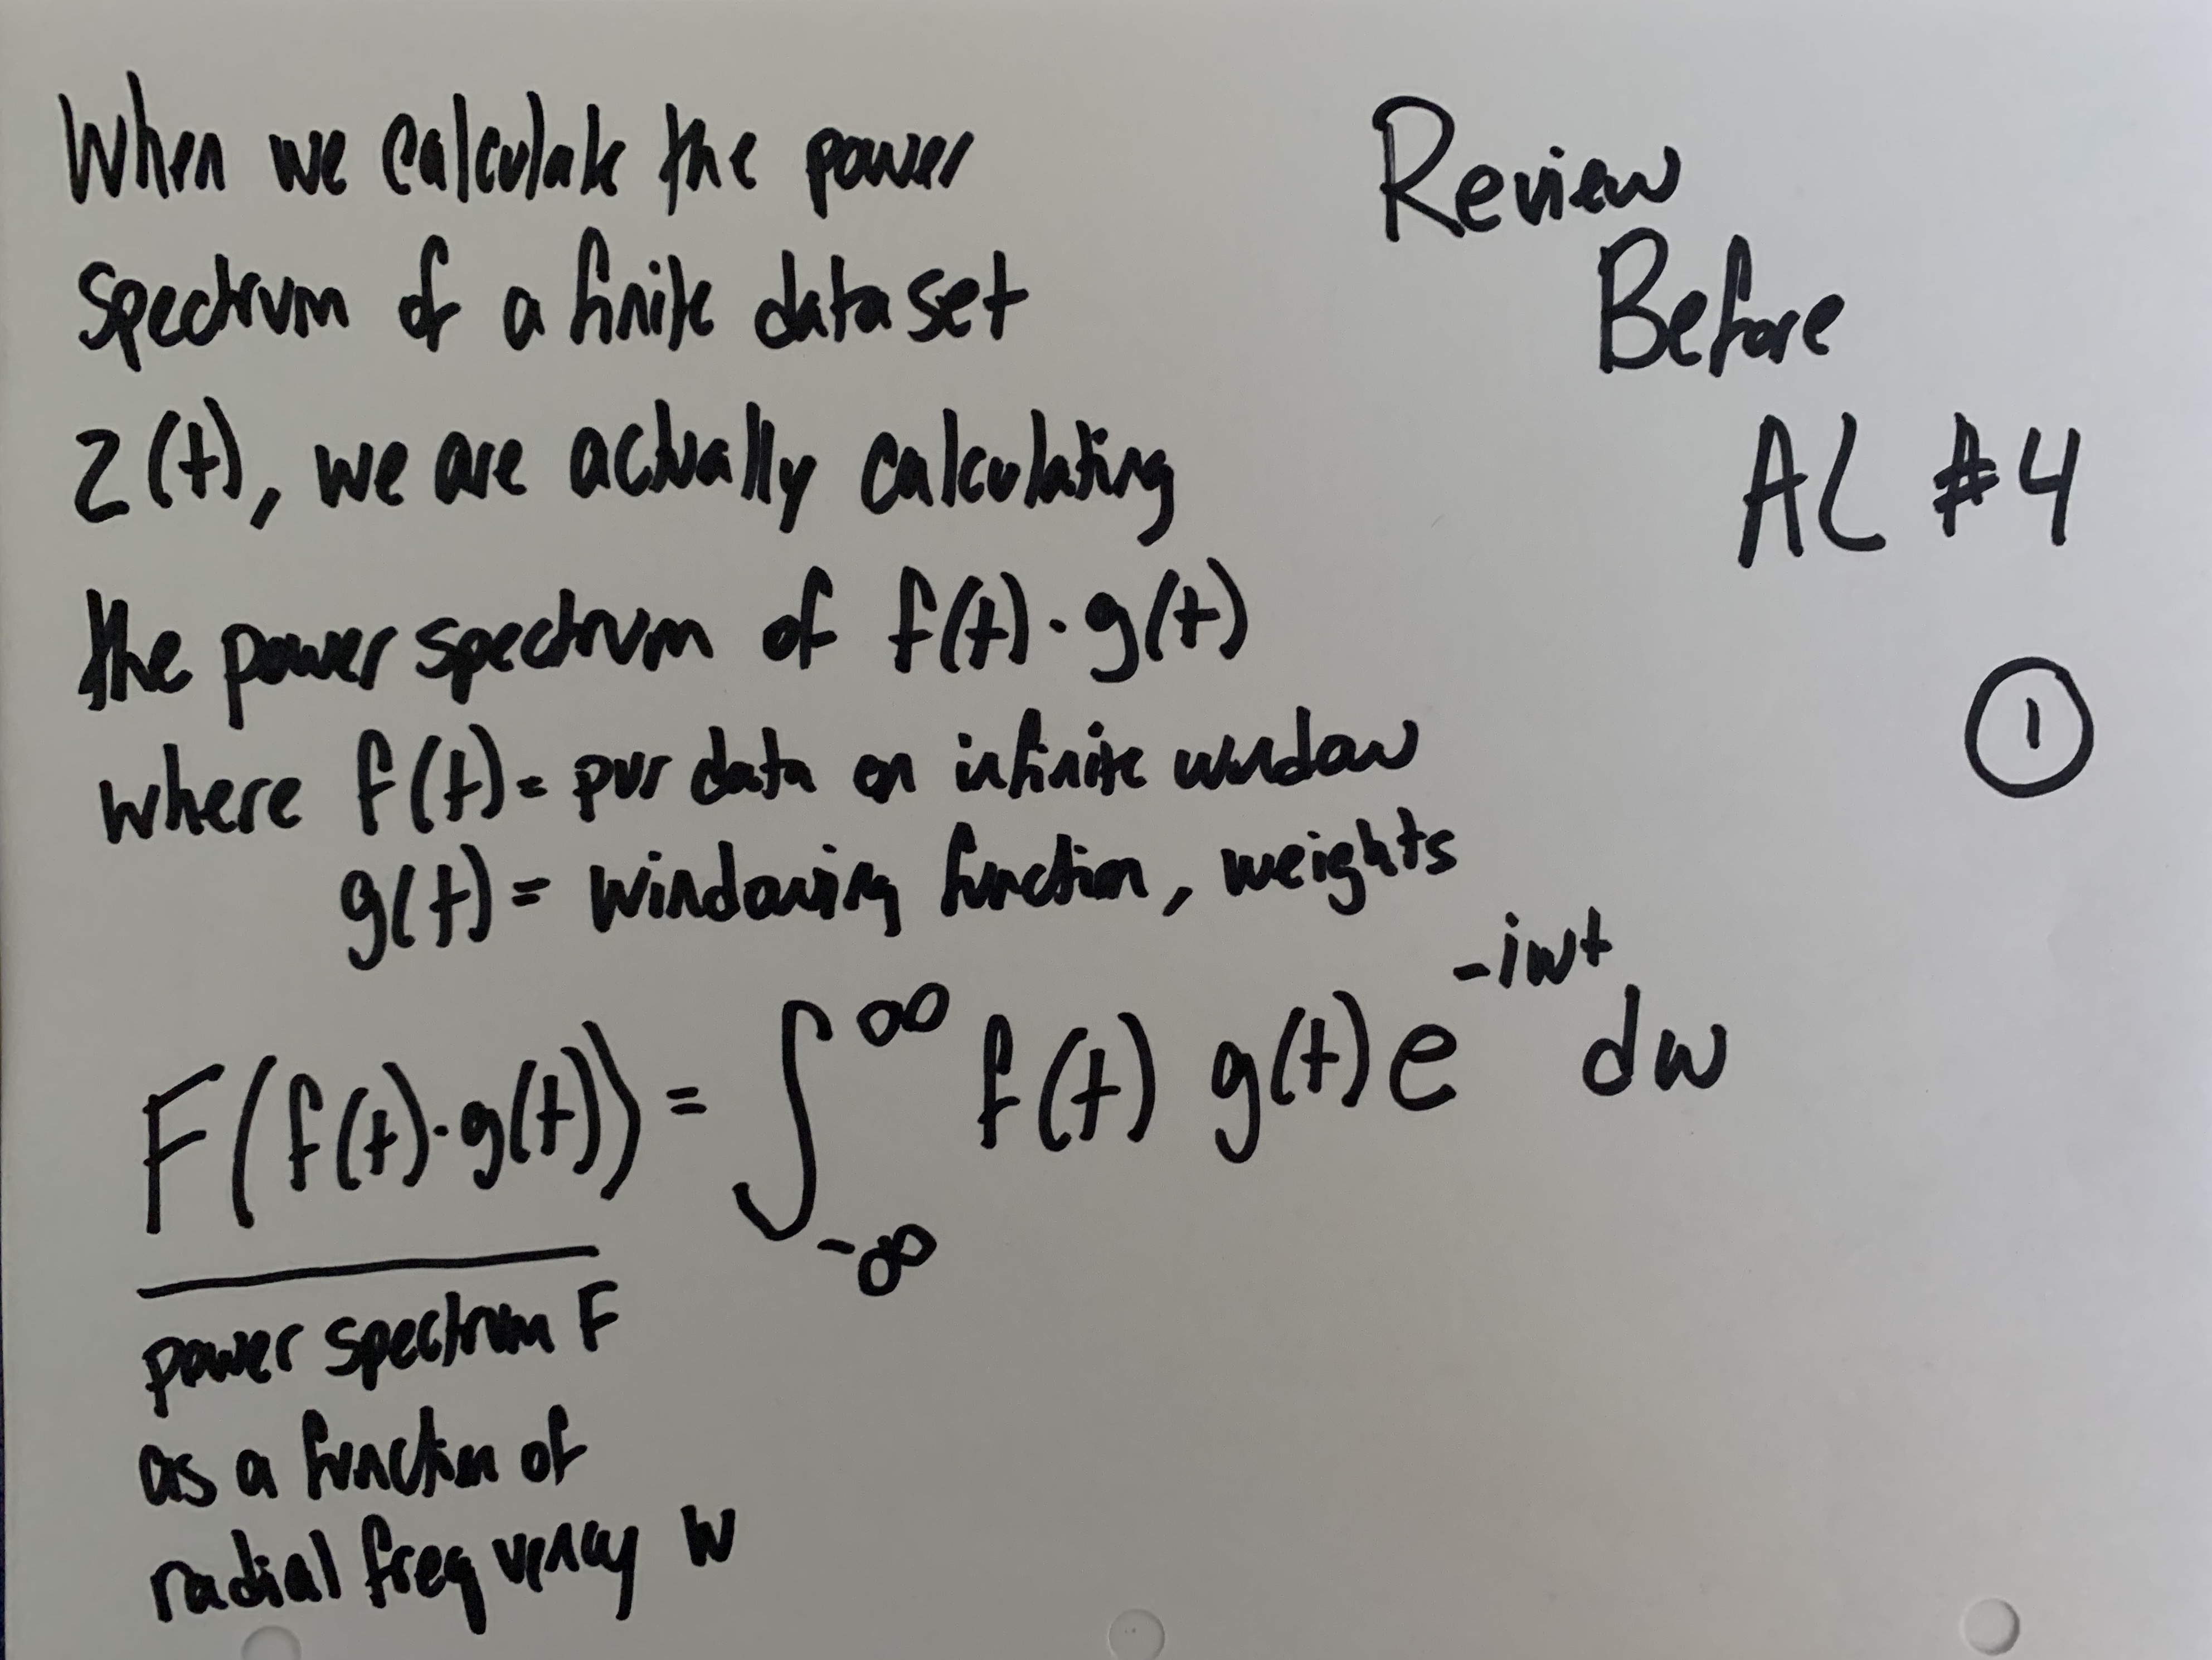 When we calculate the power
spectrum of a finite data set
z(t), we are actually calculating
the power spectrum of f(t)·g(t)
where f(t) = pur data on infinite window
g(t) = windowing function, weights
F(f(t)·g(t)) = ∫_{-∞}^{∞} f(t) g(t) e^{-iωt} dω
power spectrum F
as a function of
radial frequency ω
Review
Before
AL #4
①